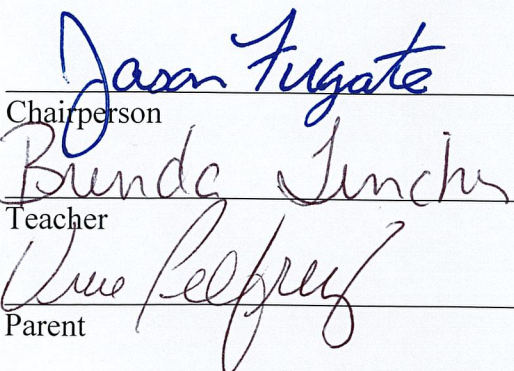 Jason Fugate
Chairperson
Brenda
Teacher
Pelfrey
Parent